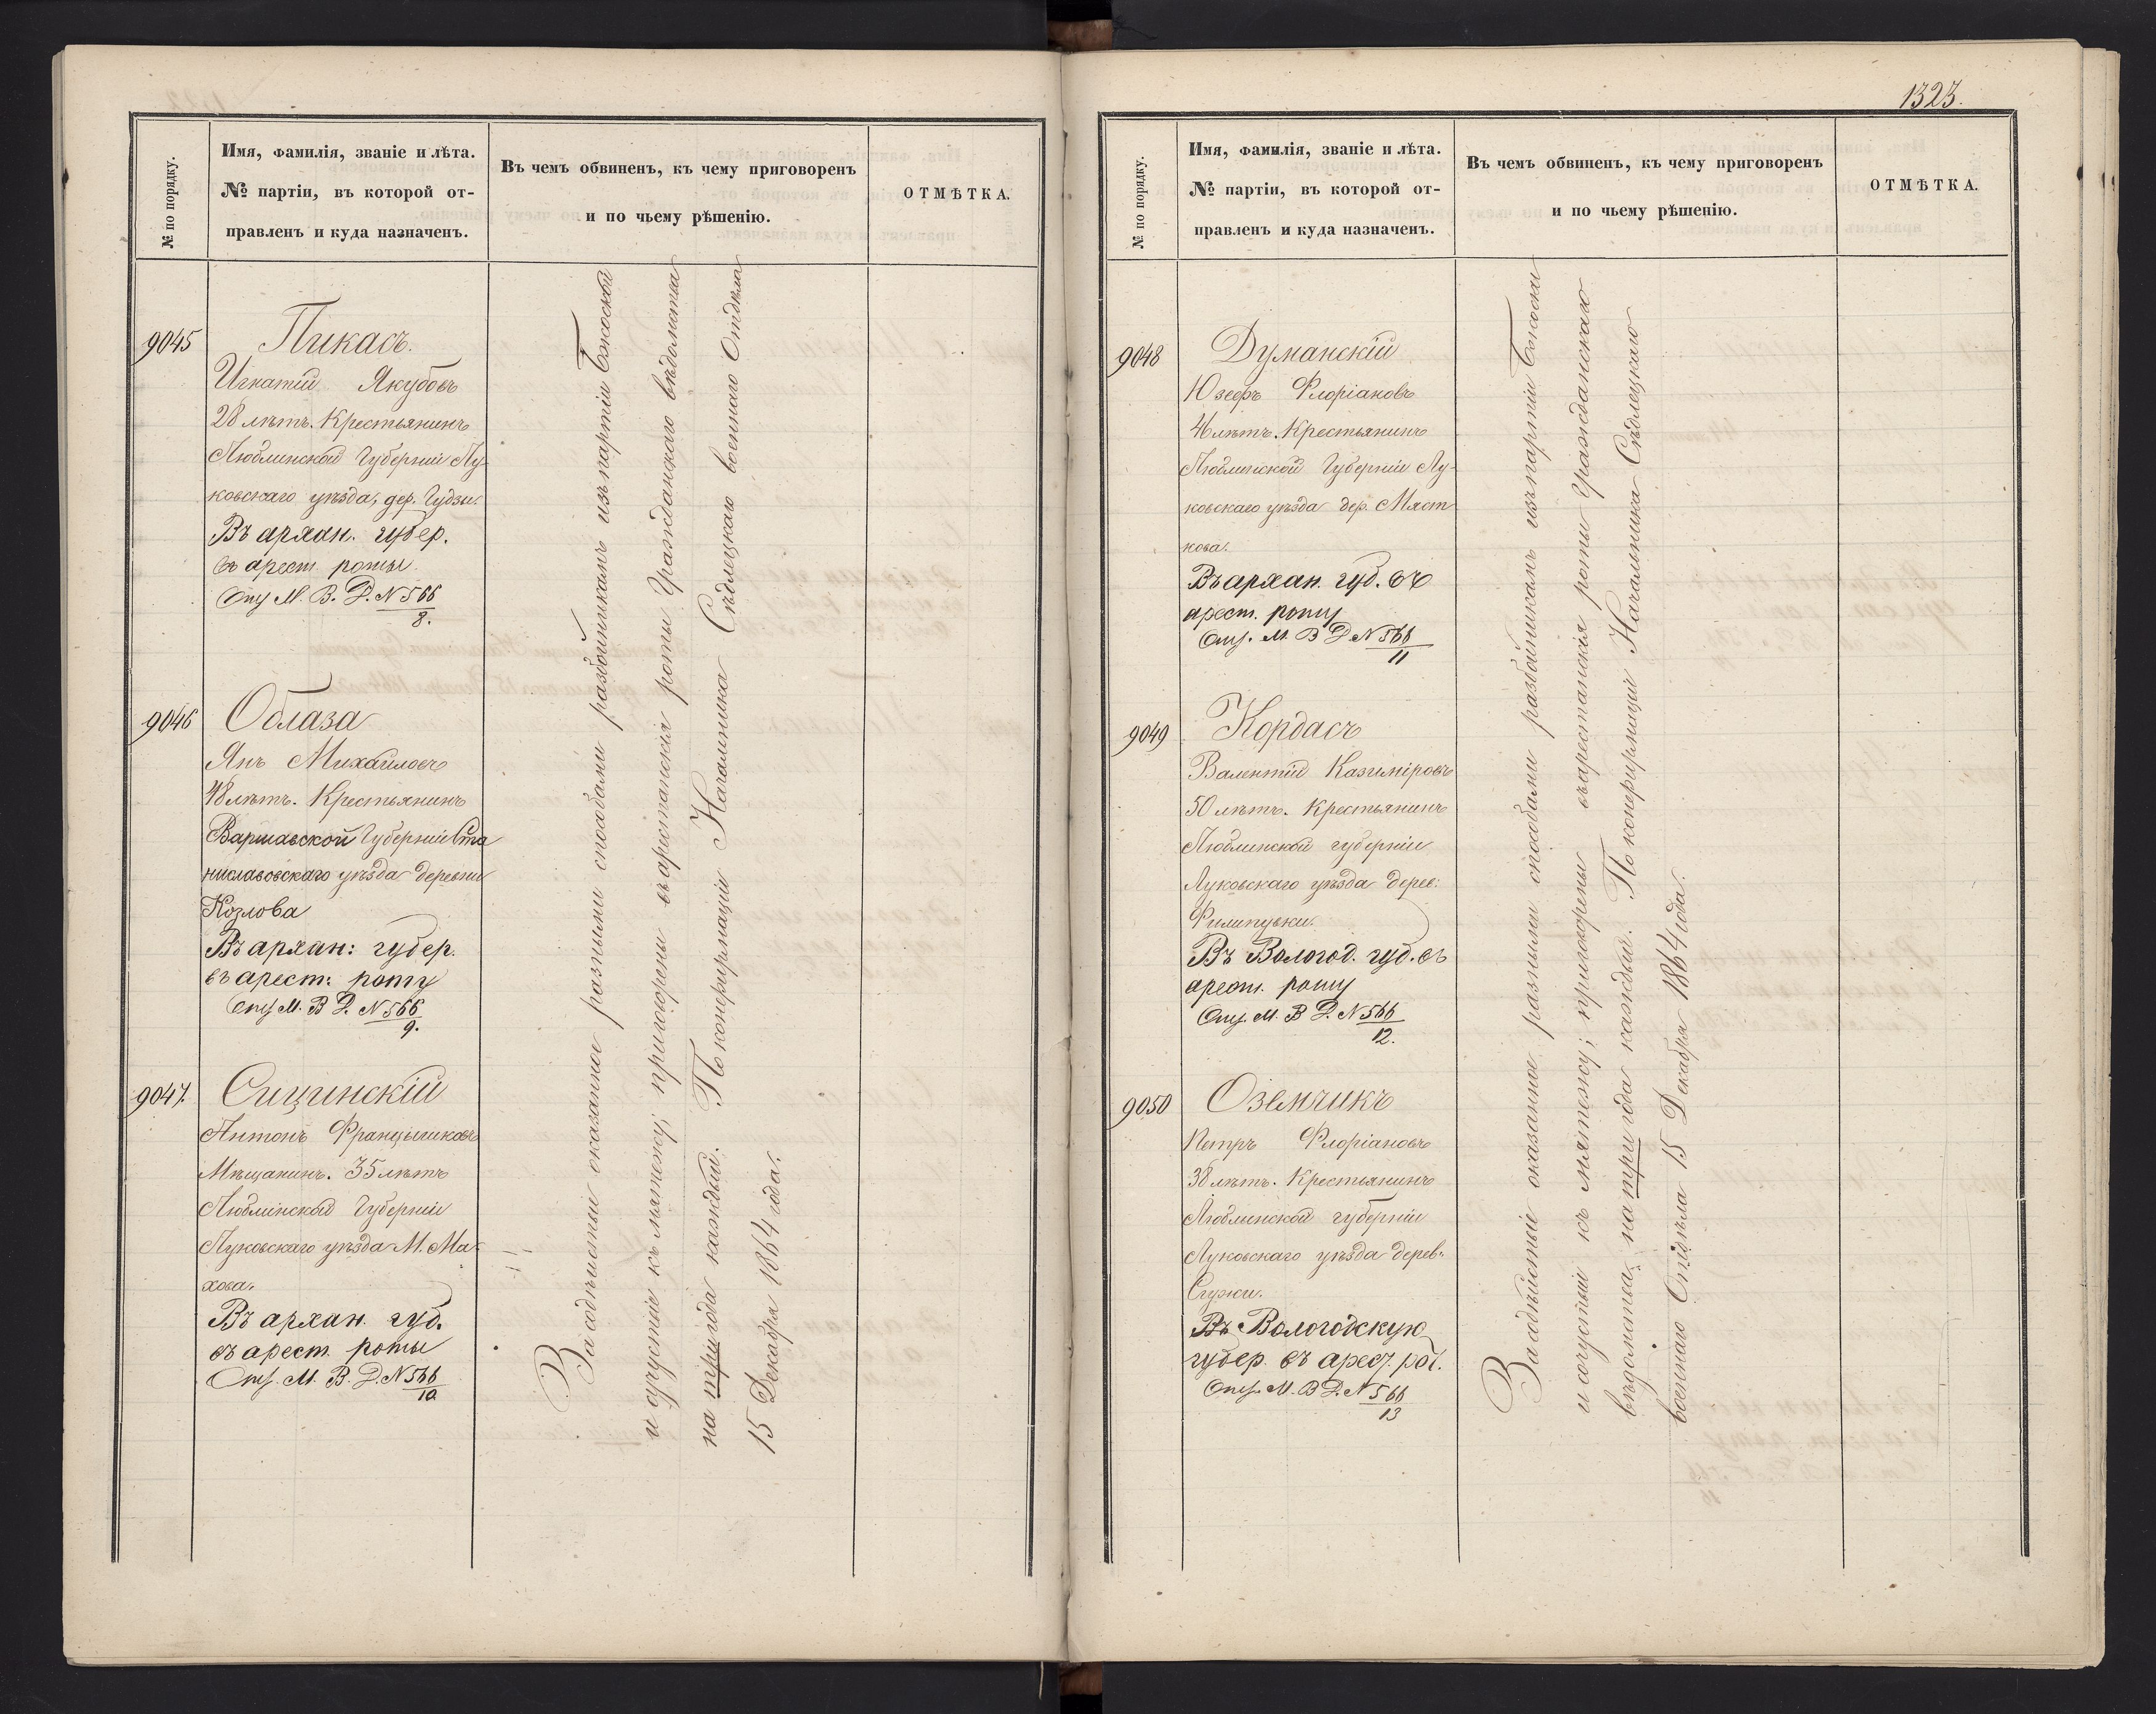 № по порядку.
Имя, фамилія, званіе и лѣта.
№ партіи, въ которой от-
правленъ и куда назначенъ.
Въ чемъ обвиненъ, къ чему приговоренъ
и по чьему рѣшенію.
ОТМѢТКА.
9045
Пикасъ.
Игнатій Якубовъ
28 лѣтъ. Крестьянинъ
Люблинской Губерніи Лу-
ковскаго уѣзда, дер. Гудзы.
Въ архан. губер.
въ арест. роты.
М. В. Д. N 566
8.
9046
Облаза
Янъ Михайловъ
48 лѣтъ. Крестьянинъ
Варшавской Губерніи Ста
ниславовскаго уѣзда деревни
Козлова
Въ архан: губер.
въ арест: роту
М. В. Д. N 566
9.
9047.
Сицинскій
Антонъ Францышковъ
Мѣщанинъ. 35 лѣтъ
Люблинской Губерніи
Луковскаго уѣзда М. Ма-
хова.
Въ архан. губ.
въ арест. роты
М. В. Д. N 566
10
За содѣйствіе оказанное разными способами разбойникамъ изъ партіи Бжоской
и сочуствіе къ мятежу; приговорены въ арестанскія роты Гражданскаго вѣдомства
на три года каждый. По конфирмаціи Началника Сѣдлецкаго военнаго Отдѣла
15 Декабря 1864 года.
1323.
№ по порядку.
Имя, фамилія, званіе и лѣта.
№ партіи, въ которой от-
правленъ и куда назначенъ.
Въ чемъ обвиненъ, къ чему приговоренъ
и по чьему рѣшенію.
ОТМѢТКА.
9048
Думанскій
Юзефъ Флоріановъ
46 лѣтъ. Крестьянинъ
Люблинской Губерніи Лу-
ковскаго уѣзда дер. Мяст
кова.
Въ архан. губ. въ
арест. роту
М. В. Д. N 566
11
9049
Кордасъ
Валентій Казиміровъ
50 лѣтъ. Крестьянинъ
Люблинской губерніи
Луковскаго уѣзда дерев:
Филипувки.
Въ Вологод. губ. въ
арест. роту
М. В. Д. N 566
12.
9050
Оземчикъ
Петръ Флоріановъ
38 лѣтъ. Крестьянинъ
Люблинской губерніи
Луковскаго уѣзда дерев:
Сужи.
Въ Вологодскую
губер. въ арест. рот.
М. В. Д. N 566
13
За содѣйствіе оказанное разными способами разбойникамъ изъ партіи Бжоски
и сочуствіи къ мятежу; приговорены въ арестанскія роты Гражданскаго
вѣдомства, на три года каждый. По конфирмаціи Начальника Сѣдлецкаго
военнаго Отдѣла 15 Декабря 1864 года.